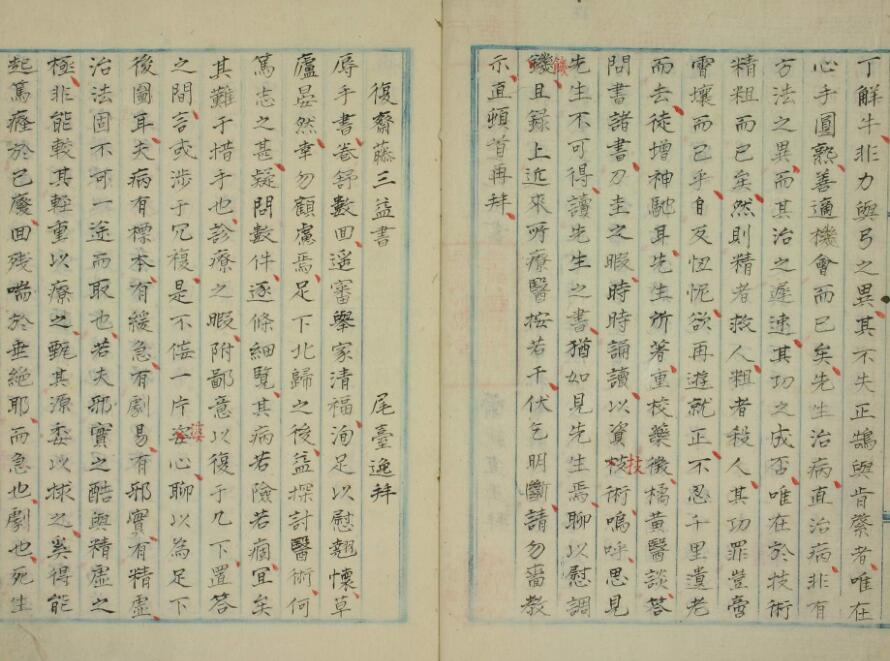 丁解牛非力與弓之異其不失正鵠與肯綮者唯在
心手圓熟善適機會而已矣先生治病直治病非有
方法之異而其治之遲速其功之成否唯在於技術
精粗而已矣然則精者救人粗者殺人其功罪豈啻
霄壤而已乎自反忸怩欲再遊就正不忍千里遺老
而去徒增神馳耳先生所著重校藥徵橘黃醫談答
問書諸書刀圭之暇時時誦讀以資技術嗚呼思見
先生不可得讀先生之書猶如見先生焉聊以慰調
饑且録上近來所療醫按若干伏乞明斷請勿嗇教
示直頓首再拜
復齋藤三益書 尾臺逸拜
辱手書卷舒數回遥審舉家清福洵足以慰翹懷草
廬晏然幸勿顧慮焉足下北歸之後益探討醫術何
篤志之甚凝問數件逐條細覽其病若險若痼宜矣
其難于措手也診療之暇附鄙意以復于几下置答
之間言或涉于冗複是不倦一片婆心聊以為足下
後圖耳夫病有標本有緩急有劇易有邪實有精虛
治法固不可一途而取也若夫邪實之酷與精虛之
極非能較其輕重以療之甄其源委以捄之奚得能
起篤癃於已廢回殘喘於垂絶耶而急也劇也死生